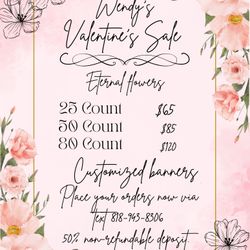 Wendy's
Valentine's Sale
Eternal flowers
25 Count $65
50 Count $85
80 Count $120
Customized banners
Place your orders now via
Text 818-943-8306
50% non-refundable deposit